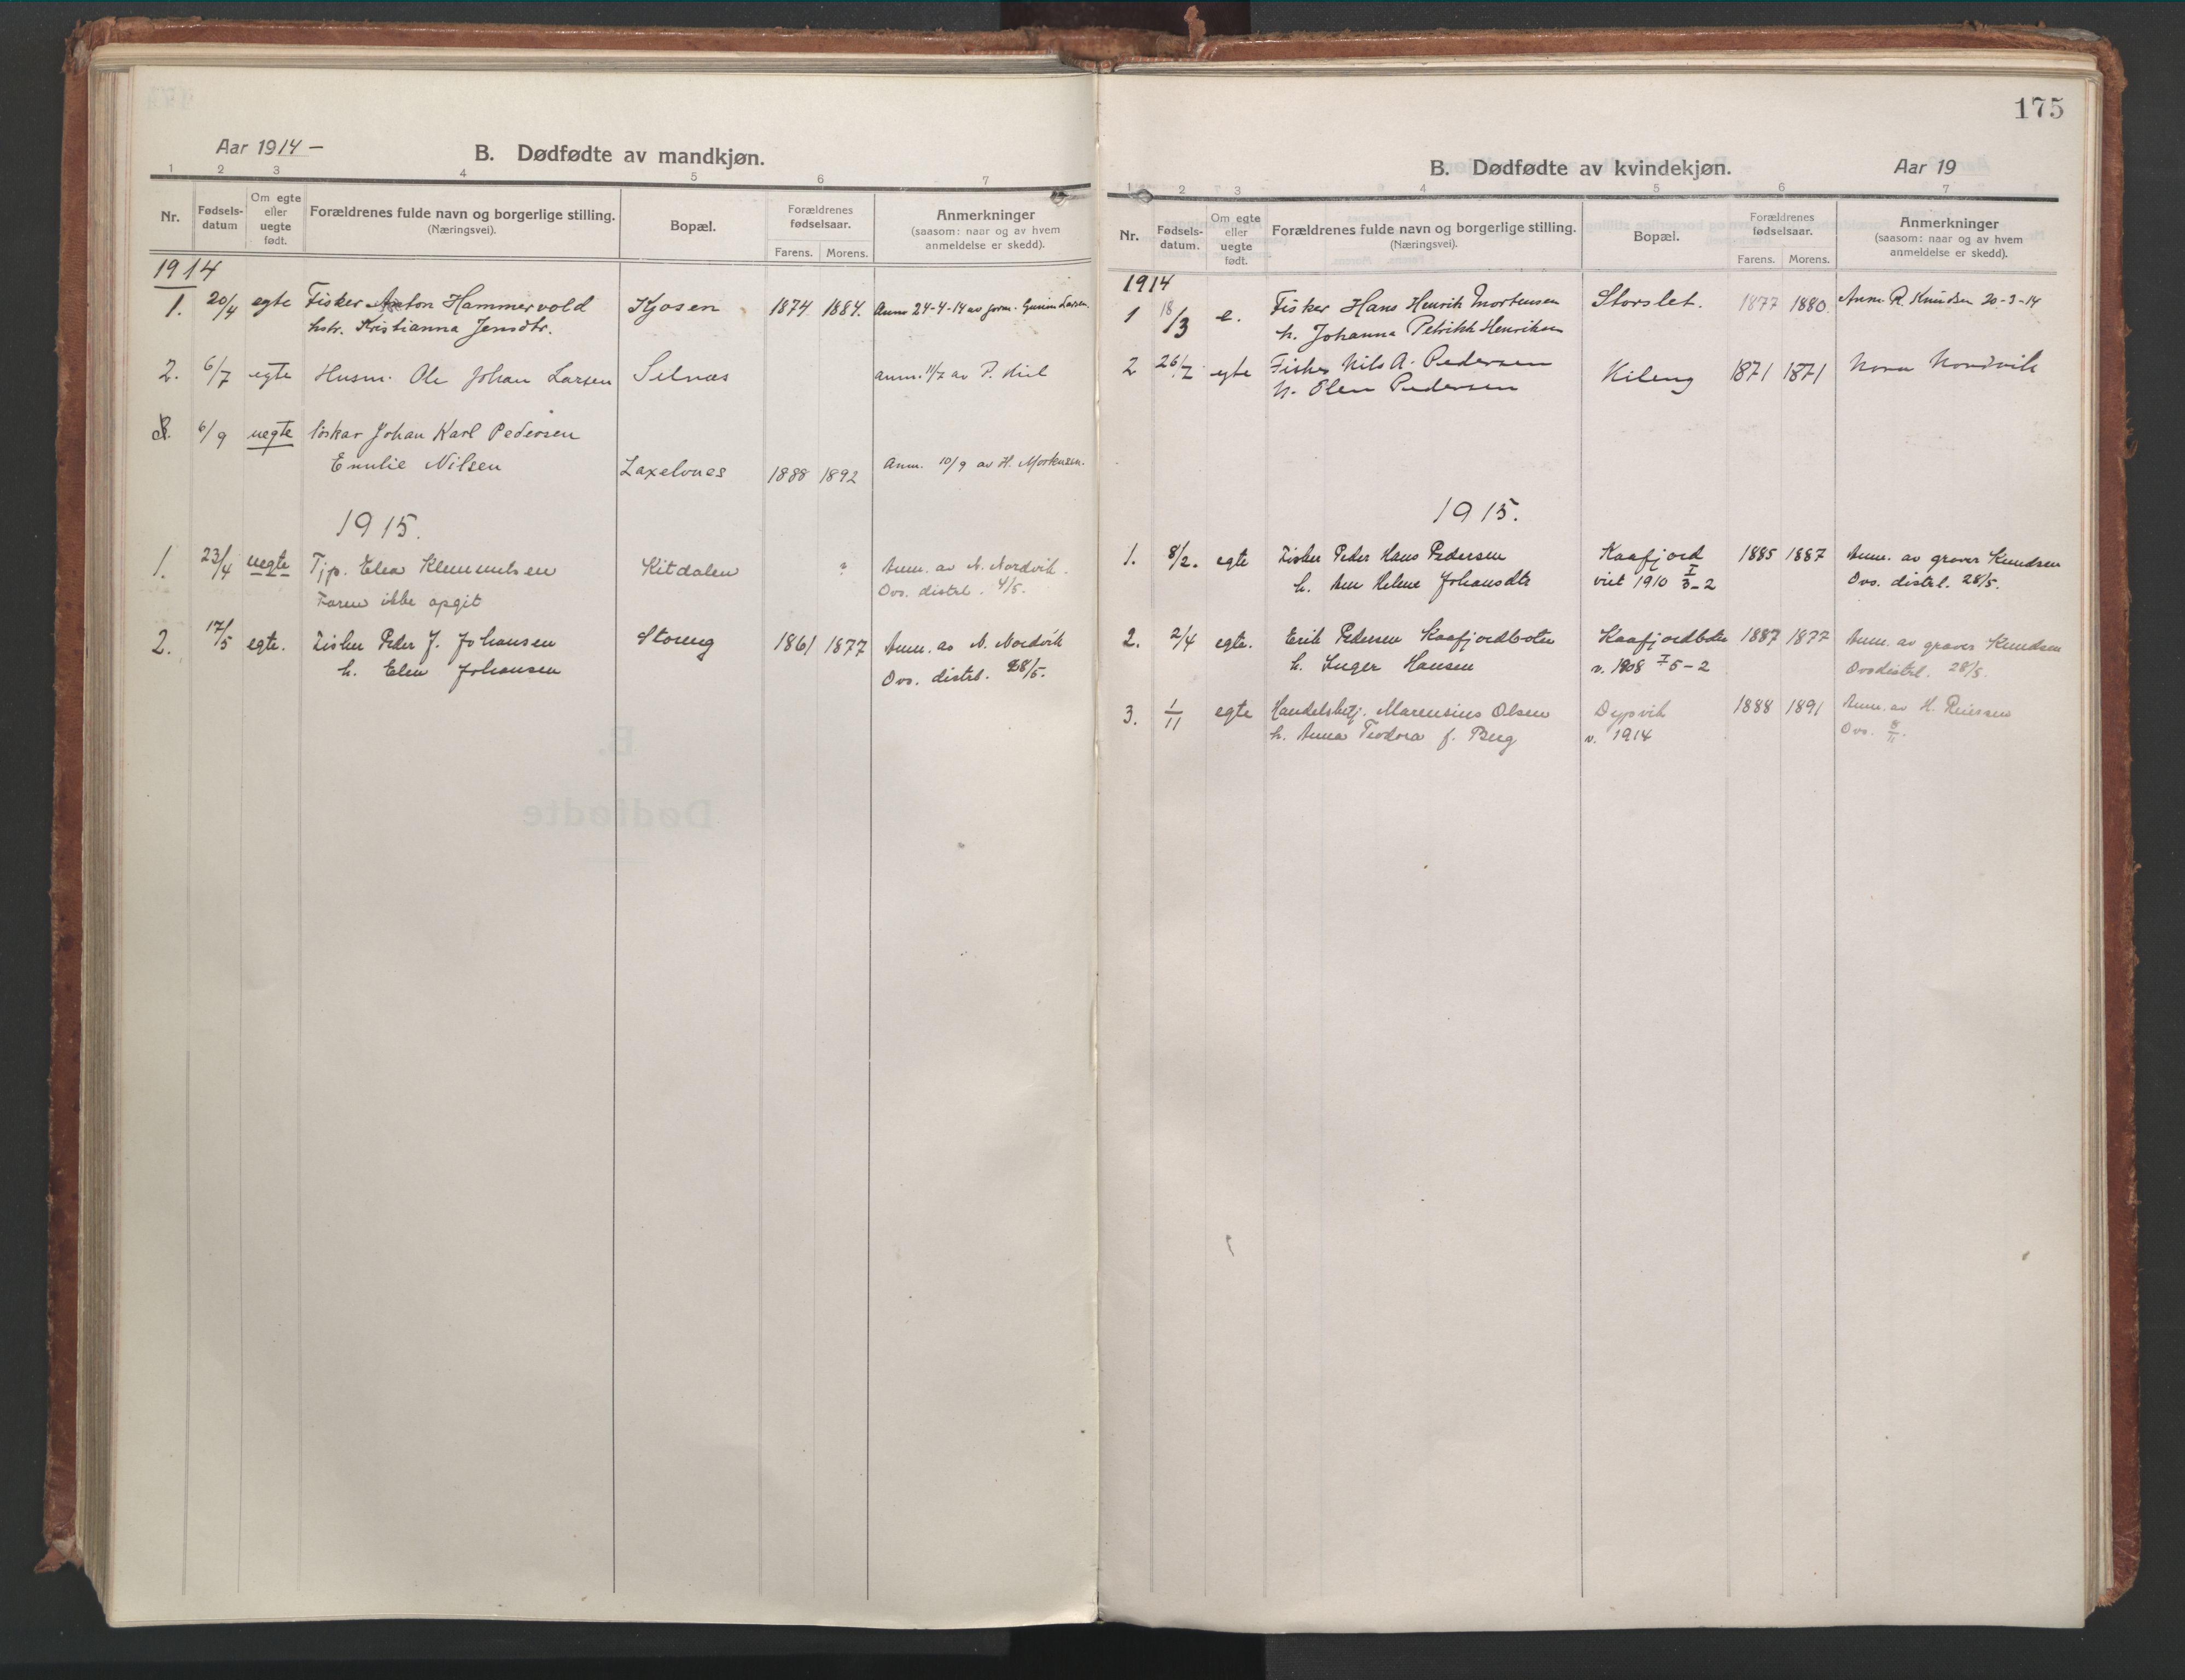 175
Aar 1914 –
B. Dødfødte av mandkjøn.
1 2 3 4 5 6 7
Nr.
Fødsels-
datum
Om egte
eller
uegte
født.
Forældrenes fulde navn og borgerlige stilling.
(Næringsvei).
Bopæl.
Forældrenes
fødselsaar.
Farens. Morens.
Anmerkninger
(saasom: naar og av hvem
anmeldelse er skedd).
1914
1. 20/4 egte Fisker Anton Hammervold Kjosen 1874 1884. Anm 24-4-14 av jorm. Larsen.
hstr. Kristianna Jensdtr.
2. 6/7 egte Husm. Ole Johan Larsen Selnæs anm. 11/7 av P. Kiil
6/9 uegte Johan Karl Pedersen
Emilie Nilsen Laxelvnes 1888 1892 Anm. 10/9 av H. Mortensen.
1915.
1. 23/4 uegte Tjp. Elea Klemmetsen Kitdalen ? Anm. av N. Nordvik.
Faren ikke opgit Ovs. distrl. 4/5.
2. 17/5 egte. Fisker Peder J. Johansen Storeng 1861 1877 Anm. av N. Nordvik
h. Elen Johansen Ovs. distrl. 28/5.
B. Dødfødte av kvindekjøn.
Aar 19
1 2 3 4 5 6 7
Nr.
Fødsels-
datum.
Om egte
eller
uegte
født.
Forældrenes fulde navn og borgerlige stilling.
(Næringsvei).
Bopæl.
Forældrenes
fødselsaar.
Farens. Morens.
Anmerkninger
(saasom: naar og av hvem
anmeldelse er skedd).
1914
1 18/3 e. Fisker Hans Henrik Mortensen Storslet. 1877 1880. Anm. R. Knudsen 20-3-14
h. Johanna Petrikke Henriksen
2 26/7 egte Fisker Nils A. Pedersen Kileng 1871 1871 Nordvik
h. Elen Pedersen
1915.
1. 8/2. egte Fisker Peder Hans Pedersen Kaafjord 1885 1887 Anm. av graver Knudsen
h. Ane Helene Johansdtr viet 1910 I 3-2 Ovs. distrl. 28/5.
2. 2/4 egte. Erik Pedersen Kaafjordboten Kaafjordboten 1887 1877 Anm. av graver Knudsen
h. Inger Hansen v. 1908 I 5-2 Ovsdistrl. 28/5.
3. 1/11 egte Handelsbetj. Marensius Olsen Dypvik 1888 1891 Anm. av H. Reiersen
h. Anna Teodora f. Berg v. 1914 Ovs. 8/11.